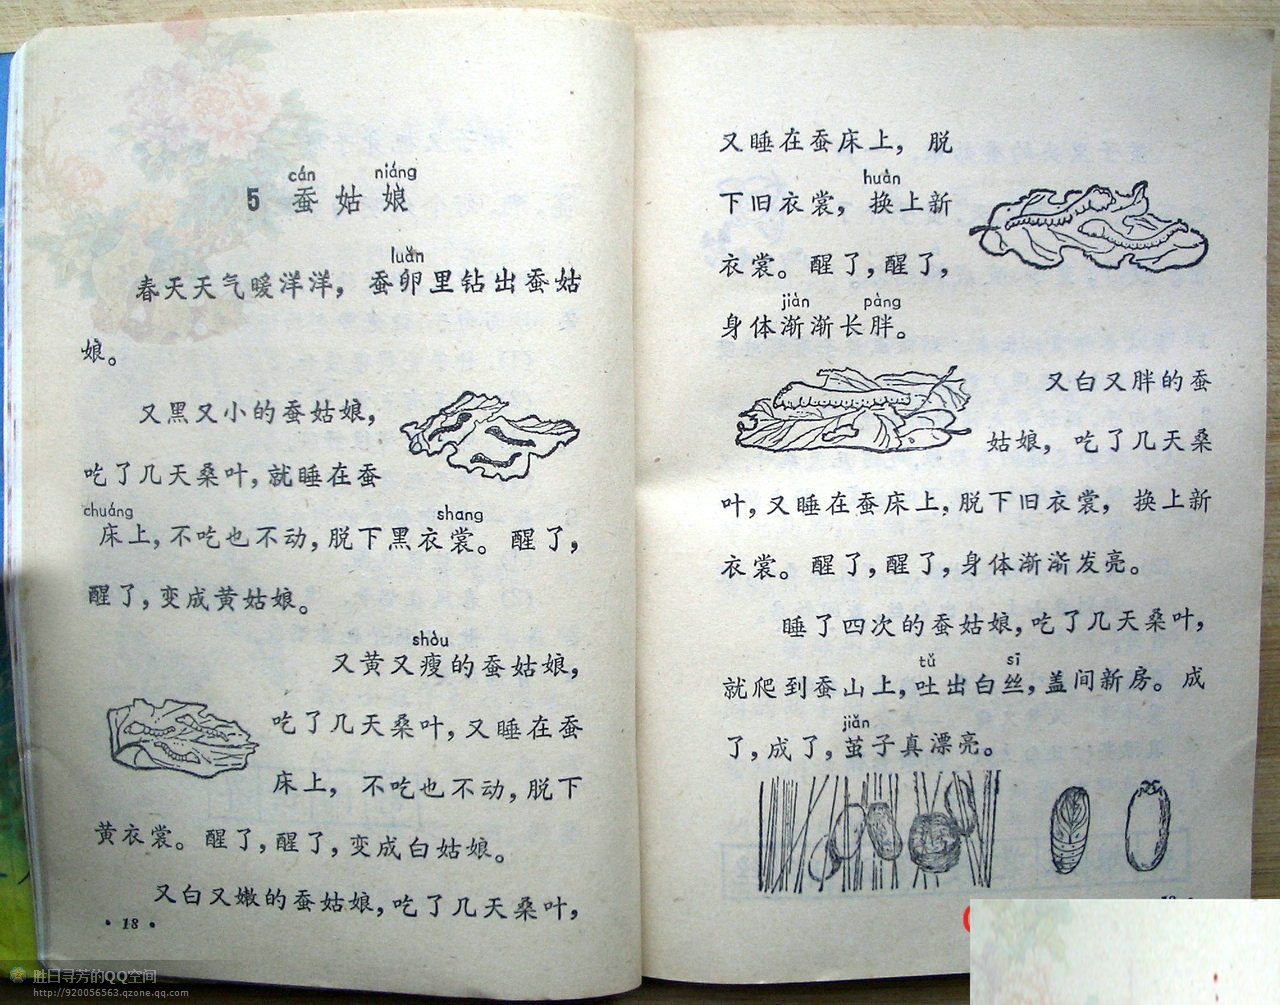 cán niáng
5 蚕姑娘
luǎn
春天天气暖洋洋，蚕卵里钻出蚕姑
娘。
又黑又小的蚕姑娘，
吃了几天桑叶，就睡在蚕
chuáng shang
床上，不吃也不动，脱下黑衣裳。醒了，
醒了，变成黄姑娘。
shòu
又黄又瘦的蚕姑娘，
吃了几天桑叶，又睡在蚕
床上，不吃也不动，脱下
黄衣裳。醒了，醒了，变成白姑娘。
又白又嫩的蚕姑娘，吃了几天桑叶，
·18·
又睡在蚕床上，脱
huàn
下旧衣裳，换上新
衣裳。醒了，醒了，
jiàn pàng
身体渐渐长胖。
又白又胖的蚕
姑娘，吃了几天桑
叶，又睡在蚕床上，脱下旧衣裳，换上新
衣裳。醒了，醒了，身体渐渐发亮。
睡了四次的蚕姑娘，吃了几天桑叶，
tǔ sī
就爬到蚕山上，吐出白丝，盖间新房。成
jiǎn
了，成了，茧子真漂亮。
胜日寻芳的QQ空间
http://920056563.qzone.qq.com